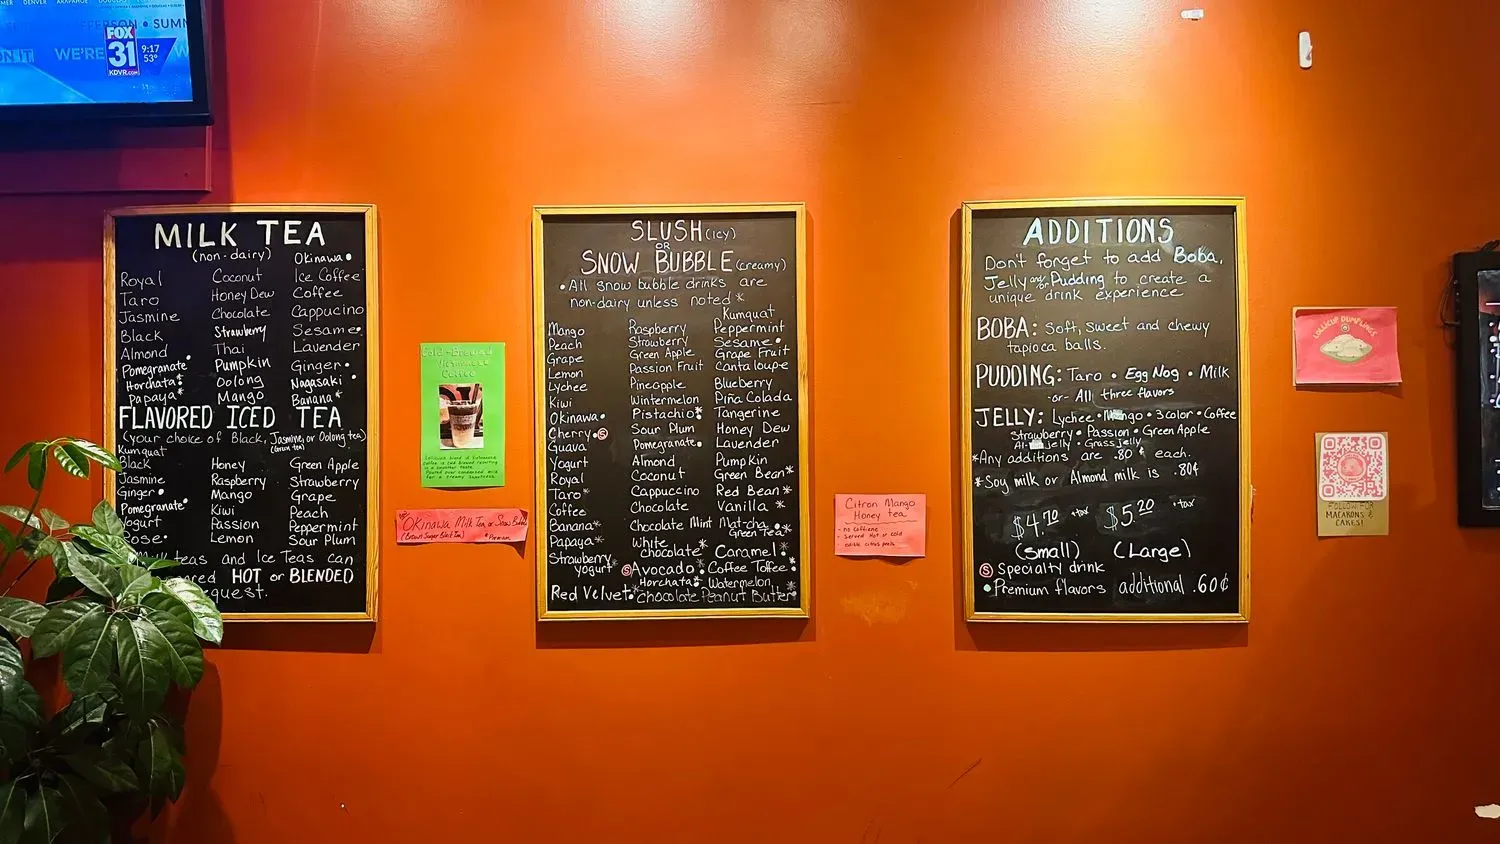 SUMM
WE'RE
FOX
31
9:17
53°
KDVR.com
MILK TEA
(non-dairy)
Royal
Taro
Jasmine
Black
Almond
Pomegranate•
Horchata•
Papaya•
Coconut
Honey Dew
Chocolate
Strawberry
Thai
Pumpkin
Oolong
Mango
Okinawa•
Ice Coffee
Coffee
Cappucino
Sesame•
Lavender
Ginger•
Nagasaki•
Banana*
FLAVORED ICED TEA
(your choice of Black, Jasmine, or Oolong tea)
(Green tea)
Kumquat
Black
Jasmine
Ginger•
Pomegranate•
Yogurt
Rose•
Honey
Raspberry
Mango
Kiwi
Passion
Lemon
Green Apple
Strawberry
Grape
Peach
Peppermint
Sour Plum
teas and Ice Teas can
HOT or BLENDED
Okinawa Milk Tea or Snow Bubble
(Brown Sugar Black Tea)
*Premium
SLUSH (icy)
OR
SNOW BUBBLE (creamy)
•All snow bubble drinks are
non-dairy unless noted*
Mango
Peach
Grape
Lemon
Lychee
Kiwi
Okinawa•
Cherry•Ⓢ
Guava
Yogurt
Royal
Taro*
Coffee
Banana*
Papaya*
Strawberry
Yogurt*
Red Velvet*
Raspberry
Strawberry
Green Apple
Passion Fruit
Pineapple
Wintermelon
Pistachio*
Sour Plum
Pomegranate•
Almond
Coconut
Cappuccino
Chocolate
Chocolate Mint
White
Chocolate*
ⓈAvocado•
Horchata*
Chocolate Peanut Butter*
Kumquat
Peppermint
Sesame•
Grape Fruit
Cantaloupe
Blueberry
Piña Colada
Tangerine
Honey Dew
Lavender
Pumpkin
Green Bean*
Red Bean*
Vanilla*
Matcha
Green Tea*
Caramel*
Coffee Toffee•
Watermelon
Citron Mango
Honey tea
- no caffeine
- served Hot or cold
- edible citrus peels
ADDITIONS
Don't forget to add Boba,
Jelly and/or Pudding to create a
unique drink experience
BOBA: Soft, sweet and chewy
tapioca balls.
PUDDING: Taro • Egg Nog • Milk
-or- All three flavors
JELLY: Lychee • Mango • 3color • Coffee
Strawberry • Passion • Green Apple
Jelly • Grass Jelly
*Any additions are .80¢ each.
*Soy milk or Almond milk is .80¢
$4.70 +tax $5.20 +tax
(small) (Large)
Ⓢ Specialty drink
•Premium flavors additional .60¢
FOLLOW FOR
MACARONS &
CAKES!